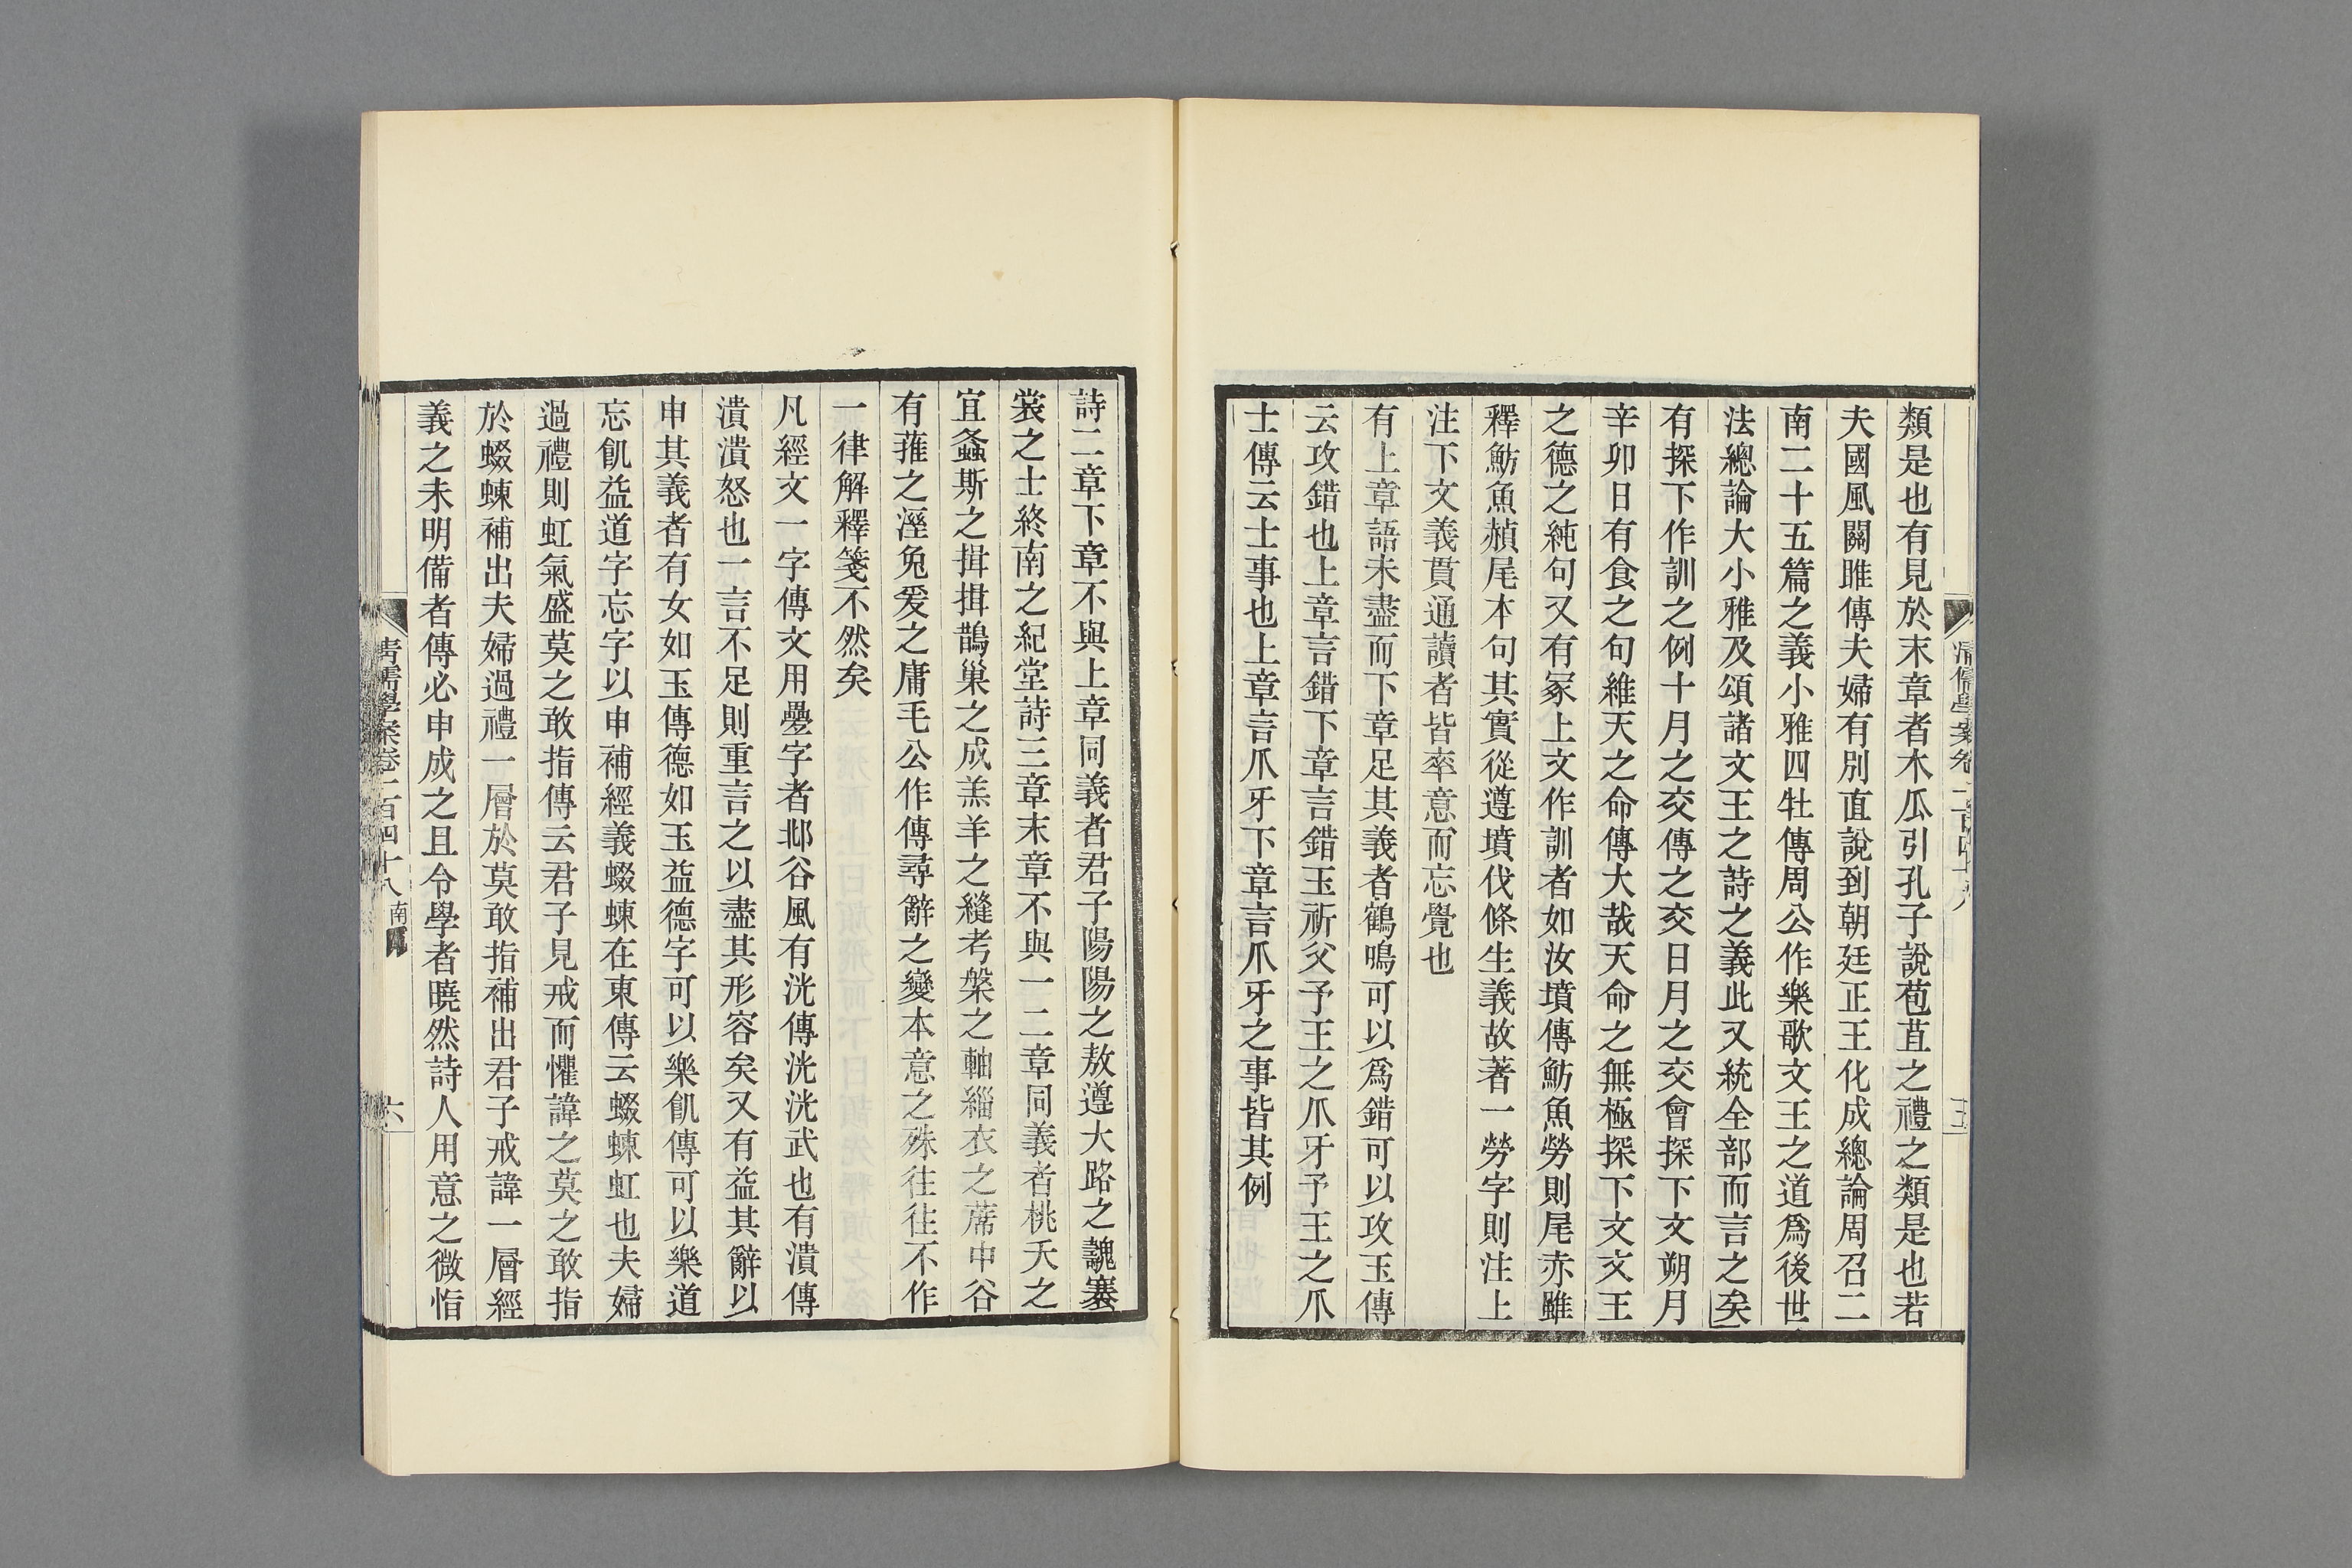 類是也有見於末章者木瓜引孔子說苞苴之禮之類是也若
夫國風關雎傳夫婦有別直說到朝廷正王化成總論周召二
南二十五篇之義小雅四牡傳周公作樂歌文王之道爲後世
法總論大小雅及頌諸文王之詩之義此又統全部而言之矣
有探下作訓之例十月之交傳之交日月之交會探下文朔月
辛卯日有食之句維天之命傳大哉天命之無極探下文文王
之德之純句又有冡上文作訓者如汝墳傳魴魚勞則尾赤雖
釋魴魚赬尾本句其實從遵墳伐條生義故著一勞字則注上
注下文義貫通讀者皆率意而忘覺也
有上章語未盡而下章足其義者鶴鳴可以爲錯可以攻玉傳
云攻錯也上章言錯下章言錯玉祈父予王之爪牙予王之爪
士傳云士事也上章言爪牙下章言爪牙之事皆其例
詩二章下章不與上章同義者君子陽陽之敖遵大路之魗褰
裳之士終南之紀堂詩三章末章不與一二章同義者桃夭之
宜螽斯之揖揖鵲巢之成羔羊之縫考槃之軸緇衣之蓆中谷
有蓷之溼兔爰之庸毛公作傳尋辭之變本意之殊往往不作
一律解釋箋不然矣
凡經文一字傳文用疊字者邶谷風有洸傳洸洸武也有潰傳
潰潰怒也一言不足則重言之以盡其形容矣又有益其辭以
申其義者有女如玉傳德如玉益德字可以樂飢傳可以樂道
忘飢益道字忘字以申補經義蝃蝀在東傳云蝃蝀虹也夫婦
過禮則虹氣盛莫之敢指傳云君子見戒而懼諱之莫之敢指
於蝃蝀補出夫婦過禮一層於莫敢指補出君子戒諱一層經
義之未明備者傳必申成之且令學者曉然詩人用意之微恉
清儒學案卷二百四十八 南
六